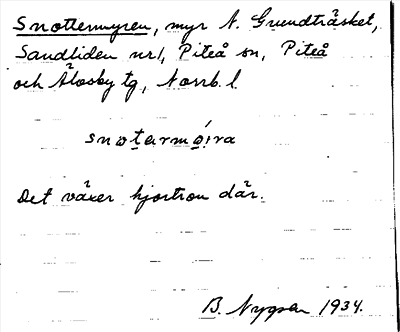 Snottermyren, myr N. Grundträsket,
Sandliden nr 1, Piteå sn, Piteå
och Älvsby tg, Norrb. l.
snotarmo̩ i̍ra
Det växer hjortron där.
B. Nygren 1934.